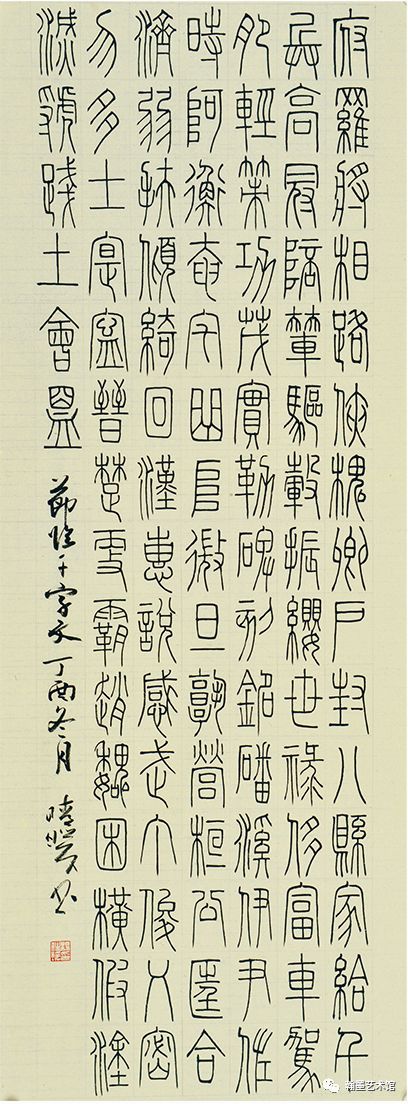 府羅將相路俠槐卿戶封八縣家給千
兵高冠陪輦驅轂振纓世祿侈富車駕
肥輕策功茂實勒碑刻銘磻溪伊尹佐
時阿衡奄宅曲阜微旦孰營桓公匡合
濟弱扶傾綺回漢惠說感武丁俊乂密
勿多士寔寧晉楚更霸趙魏困橫假塗
滅虢踐土會盟
節臨千字文丁酉冬月
書
瀚墨艺术馆